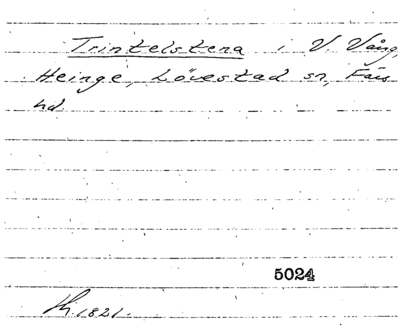 Trintelstena i V. Vång,
Heinge, Lövestad sn, Färs
hd.
5024
1821.